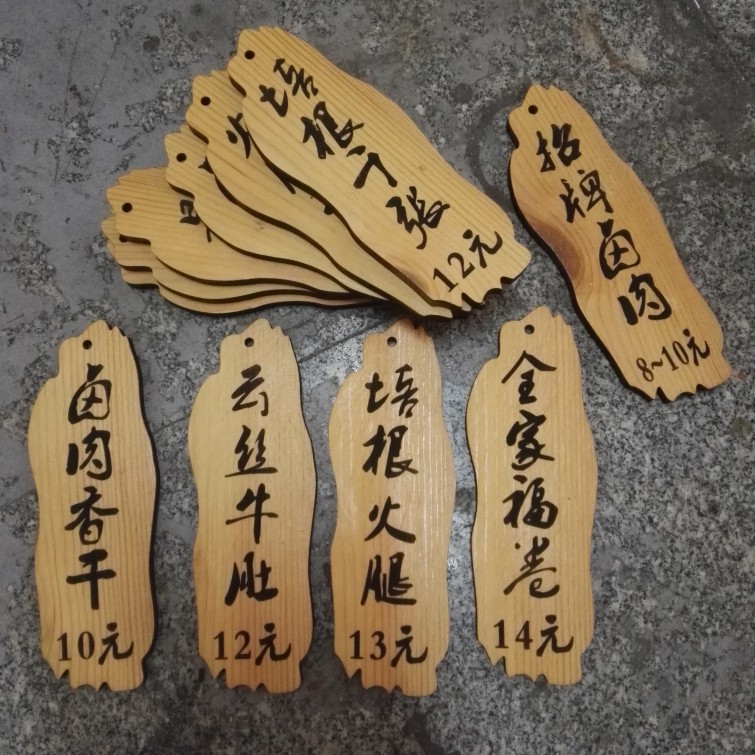 培根千张
12元
招牌卤肉
8~10元
卤肉香干
10元
云丝牛肚
12元
培根火腿
13元
全家福卷
14元